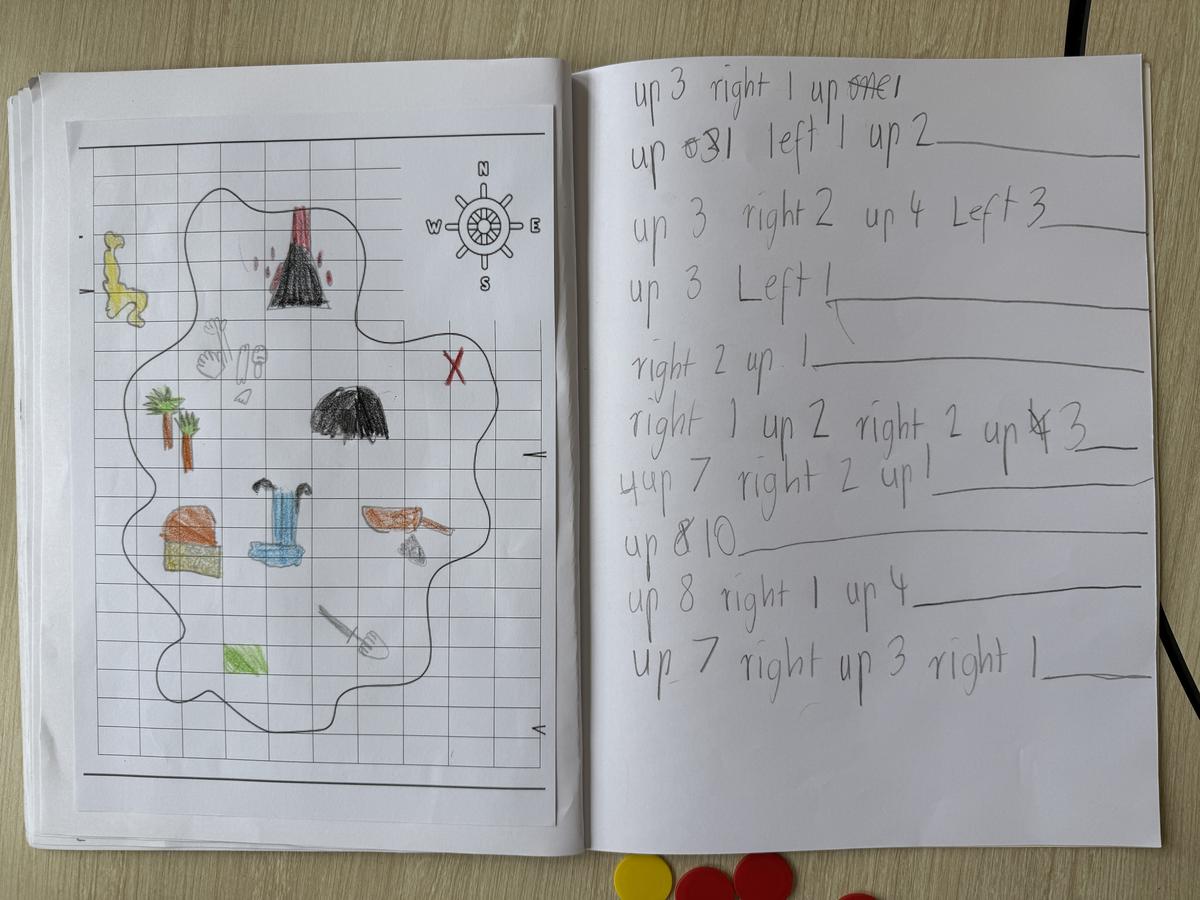 N
W E
S
X
up 3 right 1 up 1
up 1 left 1 up 2
up 3 right 2 up 4 Left 3
up 3 Left 1
right 2 up 1
right 1 up 2 right 2 up 3
up 7 right 2 up 1
up 10
up 8 right 1 up 4
up 7 right up 3 right 1